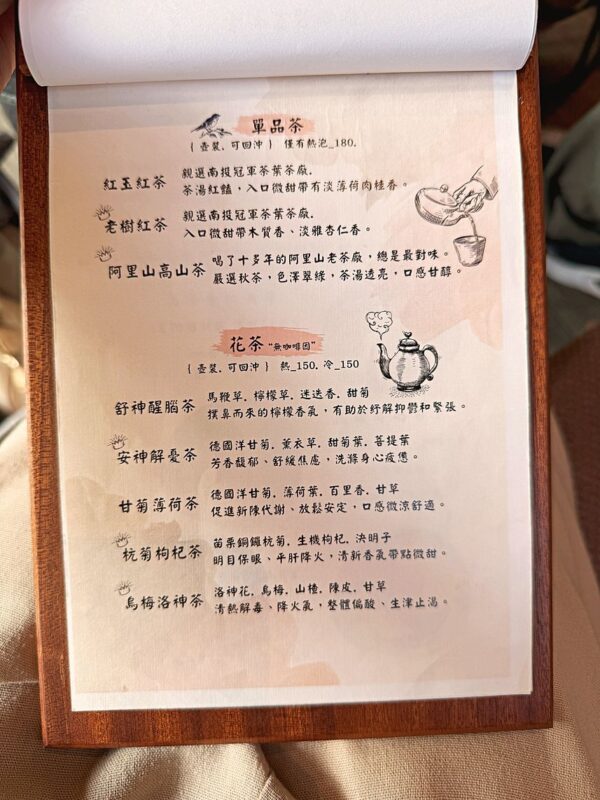 單品茶
{ 壺裝. 可回沖 } 僅有熱泡_180.
紅玉紅茶
親選南投冠軍茶葉茶廠.
茶湯紅豔，入口微甜帶有淡薄荷肉桂香。
老樹紅茶
親選南投冠軍茶葉茶廠.
入口微甜帶木質香、淡雅杏仁香。
阿里山高山茶
喝了十多年的阿里山老茶廠，總是最對味。
嚴選秋茶，色澤翠綠，茶湯透亮，口感甘醇。
花茶 "無咖啡因"
{ 壺裝. 可回沖 } 熱_150. 冷_150
舒神醒腦茶
馬鞭草. 檸檬草. 迷迭香. 甜菊
撲鼻而來的檸檬香氣，有助於紓解抑鬱和緊張。
安神解憂茶
德國洋甘菊. 薰衣草. 甜菊葉. 菩提葉
芳香馥郁、舒緩焦慮，洗滌身心疲憊。
甘菊薄荷茶
德國洋甘菊. 薄荷葉. 百里香. 甘草
促進新陳代謝、放鬆安定，口感微涼舒適。
杭菊枸杞茶
苗栗銅鑼杭菊. 生機枸杞. 決明子
明目保眼、平肝降火，清新香氣帶點微甜。
烏梅洛神茶
洛神花. 烏梅. 山楂. 陳皮. 甘草
清熱解毒、降火氣，整體偏酸、生津止渴。